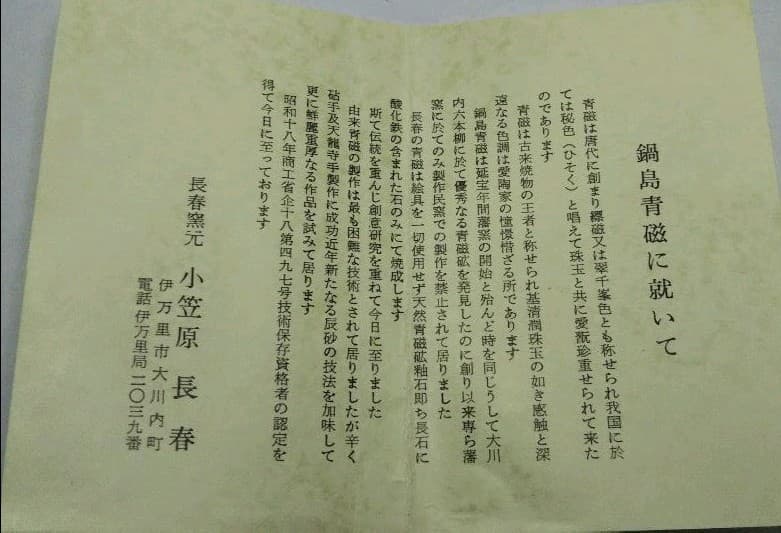 鍋島青磁に就いて
青磁は唐代に創まり縹磁又は翠千峯色とも称せられ我国に於
ては秘色（ひそく）と唱えて珠玉と共に愛翫珍重せられて来た
のであります
青磁は古来焼物の王者と称せられ基清潤珠玉の如き感触と深
遠なる色調は愛陶家の憧憬惜ざる所であります
鍋島青磁は延宝年間藩窯の開始と殆んど時を同じうして大川
内六本柳に於て優秀なる青磁砿を発見したのに創り以来専ら藩
窯に於てのみ製作民窯での製作を禁止されて居りました
長春の青磁は絵具を一切使用せず天然青磁砿釉石即ち長石に
酸化鉄の含まれた石のみにて焼成します
斯て伝統を重んじ創意研究を重ねて今日に至りました
由来青磁の製作は最も困難な技術とされて居りましたが辛く
砧手及天龍寺手製作に成功近年新たなる辰砂の技法を加味して
更に鮮麗重厚なる作品を試みて居ります
昭和十八年商工省企十八第四九七号技術保存資格者の認定を
得て今日に至っております
長春窯元 小笠原長春
伊万里市大川内町
電話伊万里局二〇三九番